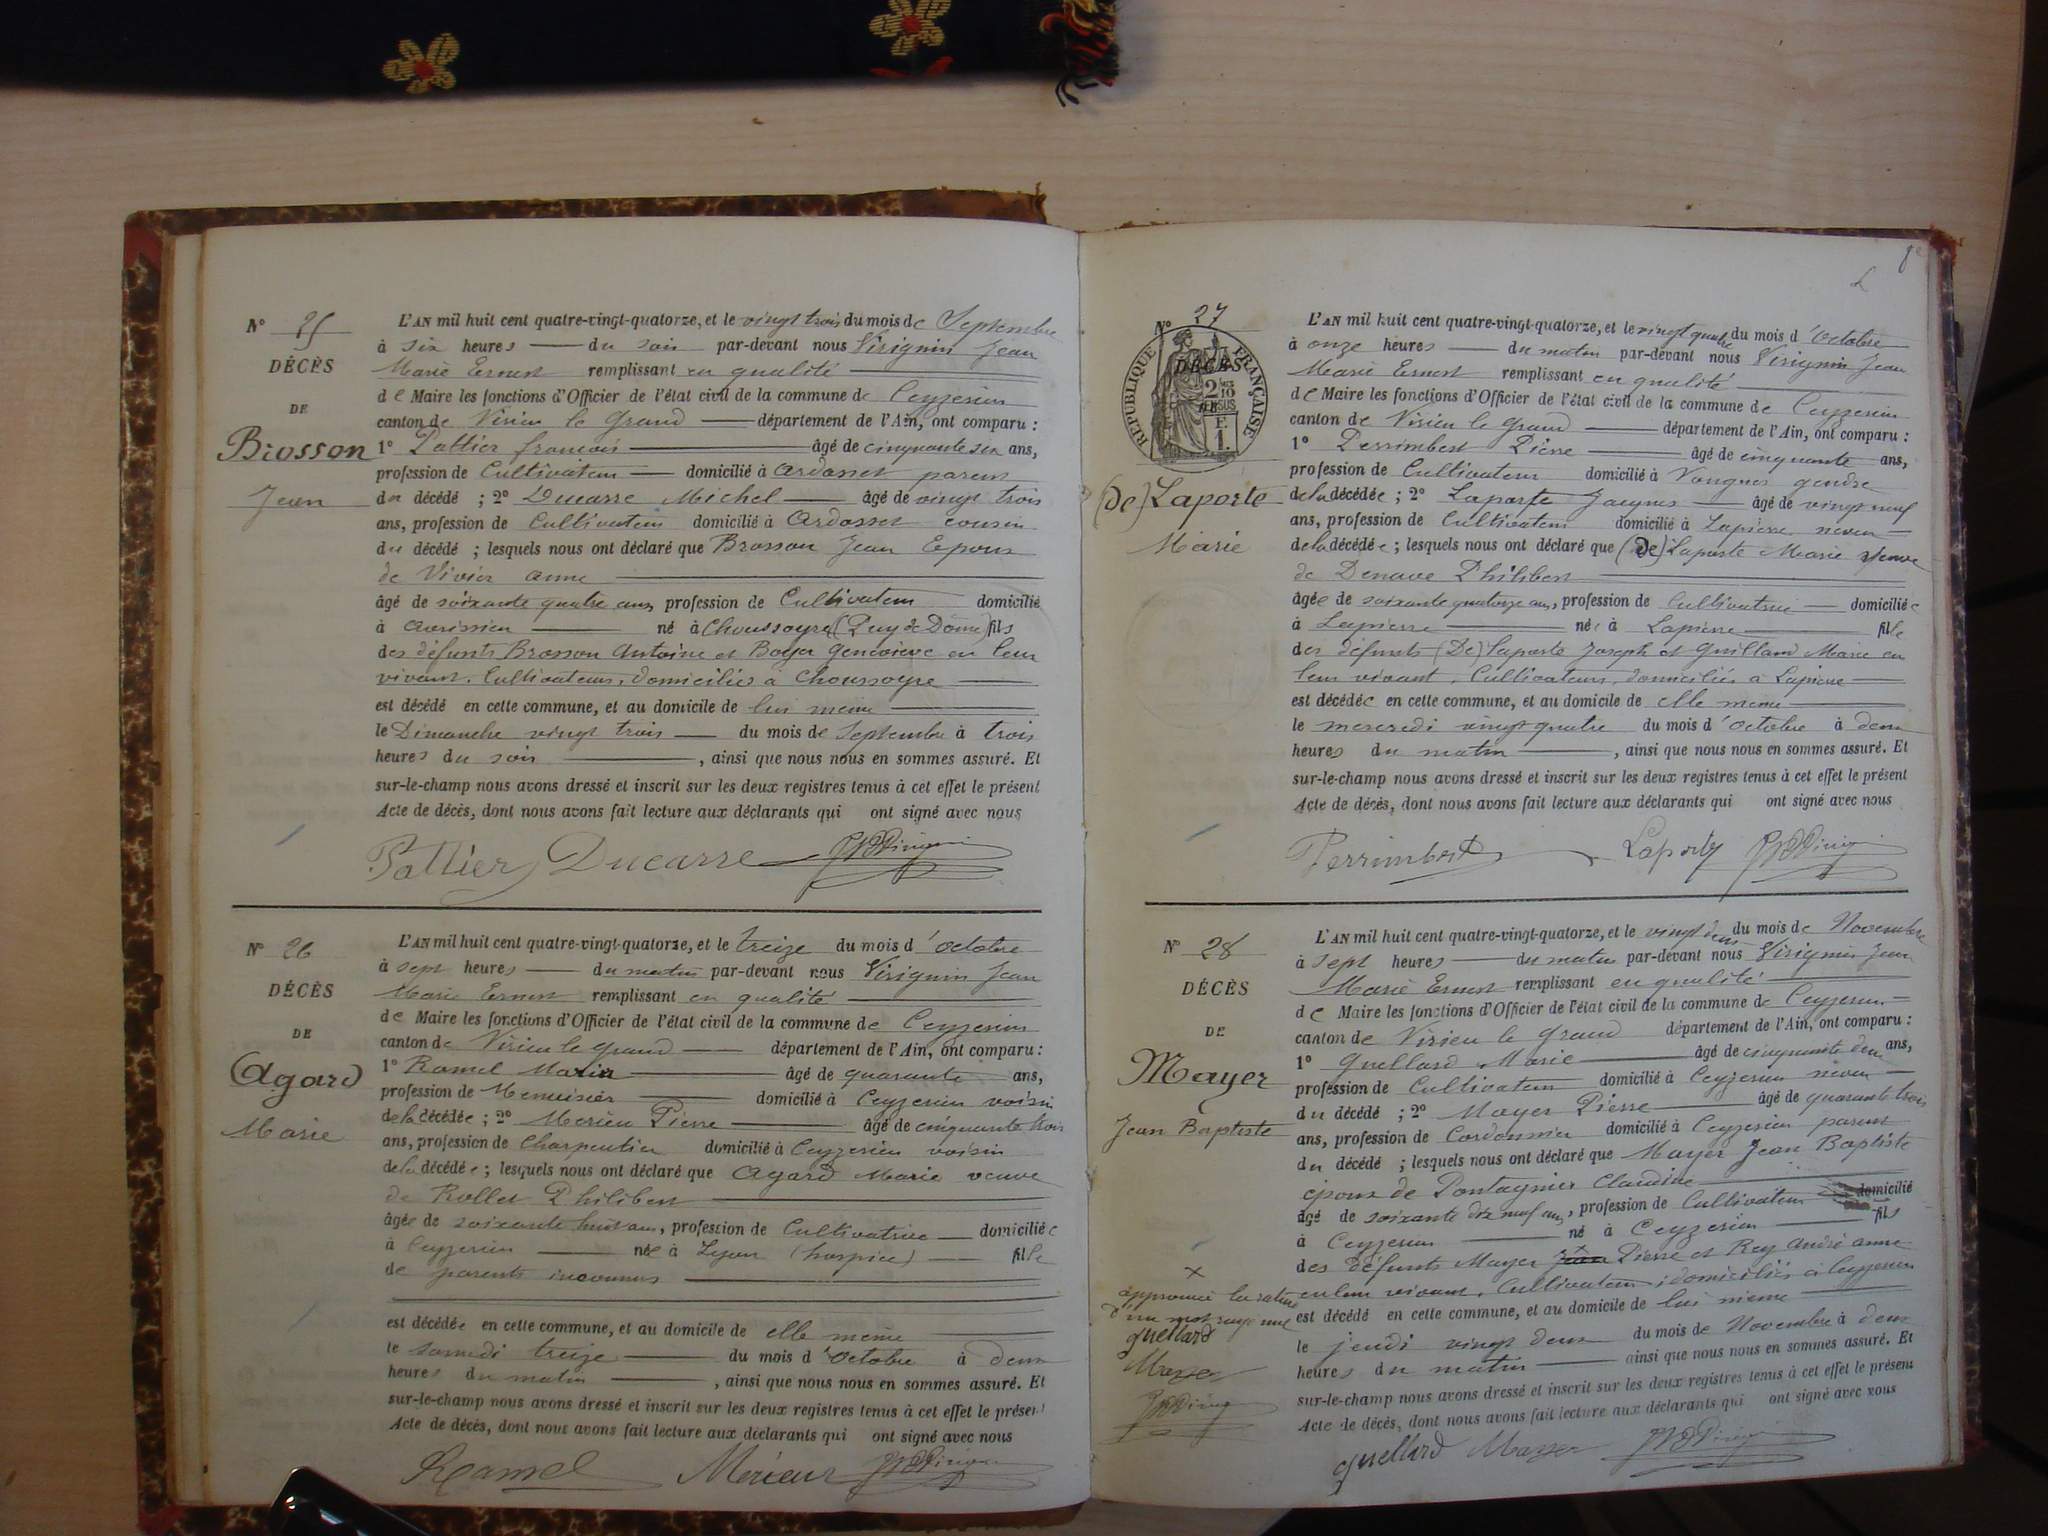 N° 25
DÉCÈS
DE
Brosson
Jean
L'AN mil huit cent quatre-vingt-quatorze, et le vingt trois du mois de Septembre
à six heures du soir par-devant nous Virignin Jean
Marie Ernest remplissant en qualité
de Maire les fonctions d'Officier de l'état civil de la commune de Ceyzerieu
canton de Virieu le Grand département de l'Ain, ont comparu :
1° Pattier françois âgé de cinquante six ans,
profession de Cultivateur domicilié à Ardosset parent
du décédé ; 2° Ducarre Michel âgé de vingt trois
ans, profession de Cultivateur domicilié à Ardosset cousin
du décédé ; lesquels nous ont déclaré que Brosson Jean Epoux
de Vivier anne
âgé de soixante quatre ans, profession de Cultivateur domicilié
à né à Choussoyre (Puy de Dôme) fils
des défunts Brosson Antoine et Boyer Genevieve en leur
vivant, Cultivateurs, domiciliés à Choussoyre
est décédé en cette commune, et au domicile de lui même
le Dimanche vingt trois du mois de Septembre à trois
heures du soir , ainsi que nous nous en sommes assuré. Et
sur-le-champ nous avons dressé et inscrit sur les deux registres tenus à cet effet le présent
Acte de décès, dont nous avons fait lecture aux déclarants qui ont signé avec nous
Pattier Ducarre
N° 26
DÉCÈS
DE
Agard
Marie
L'AN mil huit cent quatre-vingt-quatorze, et le treize du mois d'octobre
à sept heures du matin par-devant nous Virignin Jean
Marie Ernest remplissant en qualité
de Maire les fonctions d'Officier de l'état civil de la commune de Ceyzerieu
canton de Virieu le grand département de l'Ain, ont comparu :
1° Ramel Marin âgé de quarante ans,
profession de Menuisier domicilié à Ceyzerieu voisin
de la décédée ; 2° Merieu Pierre âgé de cinquante trois
ans, profession de Charpentier domicilié à Ceyzerieu voisin
de la décédée ; lesquels nous ont déclaré que Agard Marie veuve
de Rollet Philibert
âgée de soixante huit ans, profession de Cultivatrice domiciliée
à Ceyzerieu née à Lyon (hospice) fille
de parents inconnus
est décédée en cette commune, et au domicile de elle même
le samedi treize du mois d'octobre à deux
heures du matin , ainsi que nous nous en sommes assuré. Et
sur-le-champ nous avons dressé et inscrit sur les deux registres tenus à cet effet le présent
Acte de décès, dont nous avons fait lecture aux déclarants qui ont signé avec nous
Ramel Mérieux
8e
N° 27
RÉPUBLIQUE FRANÇAISE
DÉCÈS
DE
2/10 EN SUS
F.
1.
(de) Laporte
Marie
L'AN mil huit cent quatre-vingt-quatorze, et le vingt quatre du mois d'octobre
à onze heures du matin par-devant nous Virignin Jean
Marie Ernest remplissant en qualité
de Maire les fonctions d'Officier de l'état civil de la commune de Ceyzerieu
canton de Virieu le grand département de l'Ain, ont comparu :
1° Perrimbert Pierre âgé de cinquante ans,
profession de Cultivateur domicilié à Vongnes gendre
de la décédée ; 2° Laporte Jacques âgé de vingt neuf
ans, profession de Cultivateur domicilié à Lapierre neveu
de la décédée ; lesquels nous ont déclaré que (de) Laporte Marie veuve
de Denave Philibert
âgée de soixante quatorze ans, profession de Cultivatrice domiciliée
à Lapierre née à Lapierre fille
des défunts (De) Laporte Joseph et Guilland Marie en
leur vivant, Cultivateurs, domiciliés à Lapierre
est décédée en cette commune, et au domicile de elle même
le mercredi vingt quatre du mois d'octobre à deux
heures du matin , ainsi que nous nous en sommes assuré. Et
sur-le-champ nous avons dressé et inscrit sur les deux registres tenus à cet effet le présent
Acte de décès, dont nous avons fait lecture aux déclarants qui ont signé avec nous
Perrimbert Laporte
N° 28
DÉCÈS
DE
Mayer
Jean Baptiste
L'AN mil huit cent quatre-vingt-quatorze, et le vingt deux du mois de Novembre
à sept heures du matin par-devant nous Virignin Jean
Marie Ernest remplissant en qualité
de Maire les fonctions d'Officier de l'état civil de la commune de Ceyzerieu
canton de Virieu le grand département de l'Ain, ont comparu :
1° Guellard Marie âgé de cinquante deux ans,
profession de Cultivateur domicilié à Ceyzerieu neveu
du décédé ; 2° Mayer Pierre âgé de quarante trois
ans, profession de Cordonnier domicilié à Ceyzerieu parent
du décédé ; lesquels nous ont déclaré que Mayer Jean Baptiste
époux de Pontagnier Claudine
âgé de soixante dix neuf ans, profession de Cultivateur domicilié
à Ceyzerieu né à Ceyzerieu fils
des défunts Mayer Jean Pierre et Rey André anne
en leur vivant, Cultivateurs, domiciliés à Ceyzerieu
est décédé en cette commune, et au domicile de lui même
le jeudi vingt deux du mois de Novembre à deux
heures du matin ainsi que nous nous en sommes assuré. Et
sur-le-champ nous avons dressé et inscrit sur les deux registres tenus à cet effet le présent
Acte de décès, dont nous avons fait lecture aux déclarants qui ont signé avec nous
guellard Mayer
x
approuvé la rature
d'un mot rayé nul
guellard
Mayer